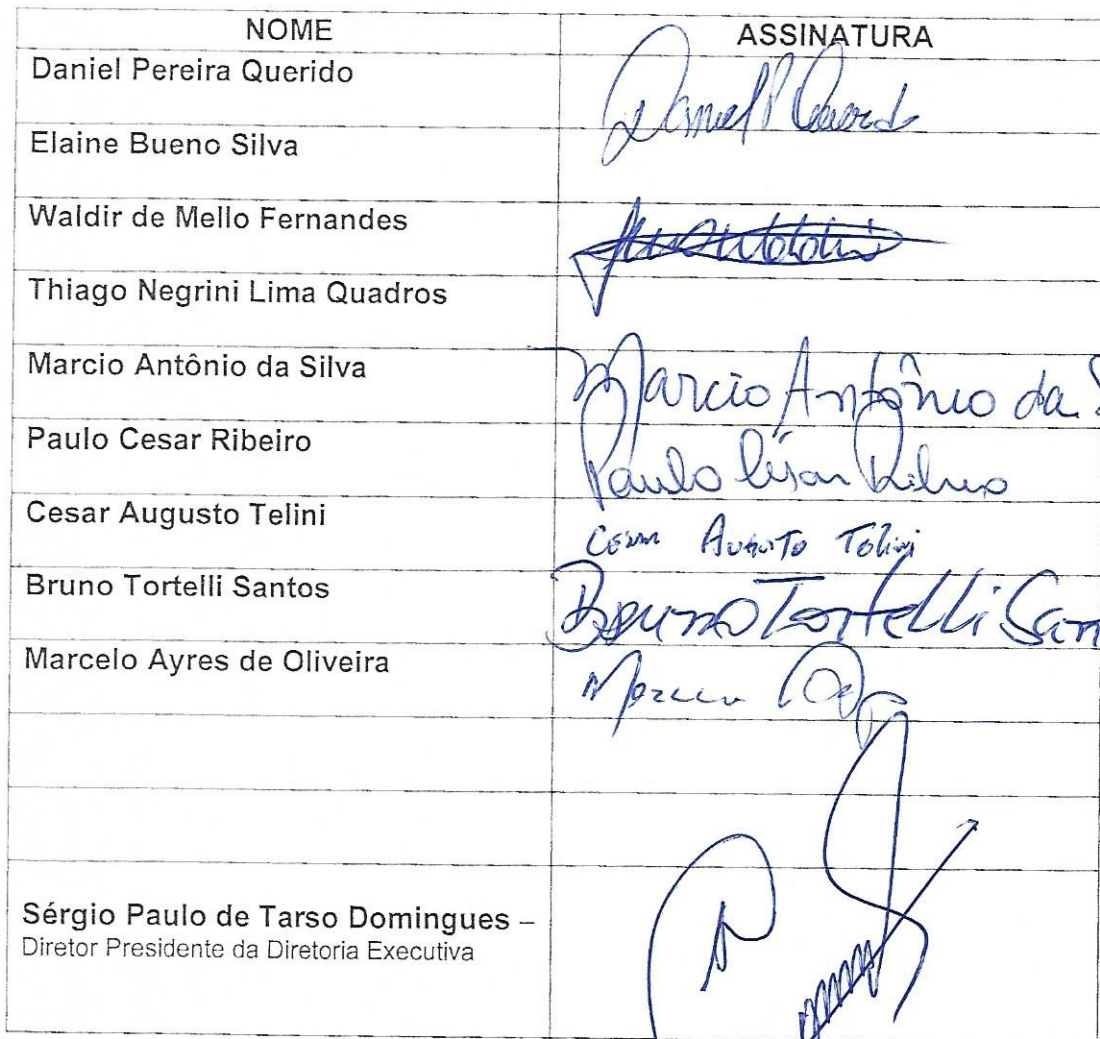 NOME ASSINATURA
Daniel Pereira Querido Daniel P Querido
Elaine Bueno Silva
Waldir de Mello Fernandes
Thiago Negrini Lima Quadros
Marcio Antônio da Silva Marcio Antônio da S
Paulo Cesar Ribeiro Paulo César Ribeiro
Cesar Augusto Telini Cesar Augusto Telini
Bruno Tortelli Santos Bruno Tortelli San
Marcelo Ayres de Oliveira
Sérgio Paulo de Tarso Domingues –
Diretor Presidente da Diretoria Executiva